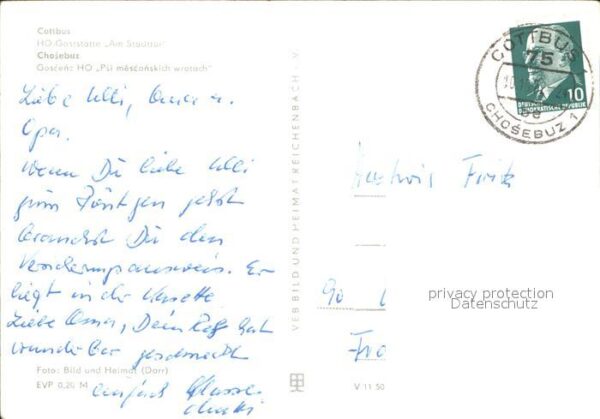 Cottbus
HO-Gaststätte „Am Stadttor"
Chośebuz
Gosćeńc HO „Pśi měsćańskich wrotach"
Liebe Ulli, Oma u.
Opa.
Wenn Du liebe Ulli
zum Röntgen gehst
brauchst Du den
Versicherungsausweis. Er
liegt in der Kassette.
Liebe Oma, Dein hat
wunderbar geschmeckt
einfach Klasse.
Foto: Bild und Heimat (Darr)
EVP 0,20 M
V 11 50
VEB BILD UND HEIMAT REICHENBACH i. V.
COTTBUS
75
CHOŚEBUZ 1
10
DEUTSCHE
DEMOKRATISCHE REPUBLIK
Fritz
90
privacy protection
Datenschutz